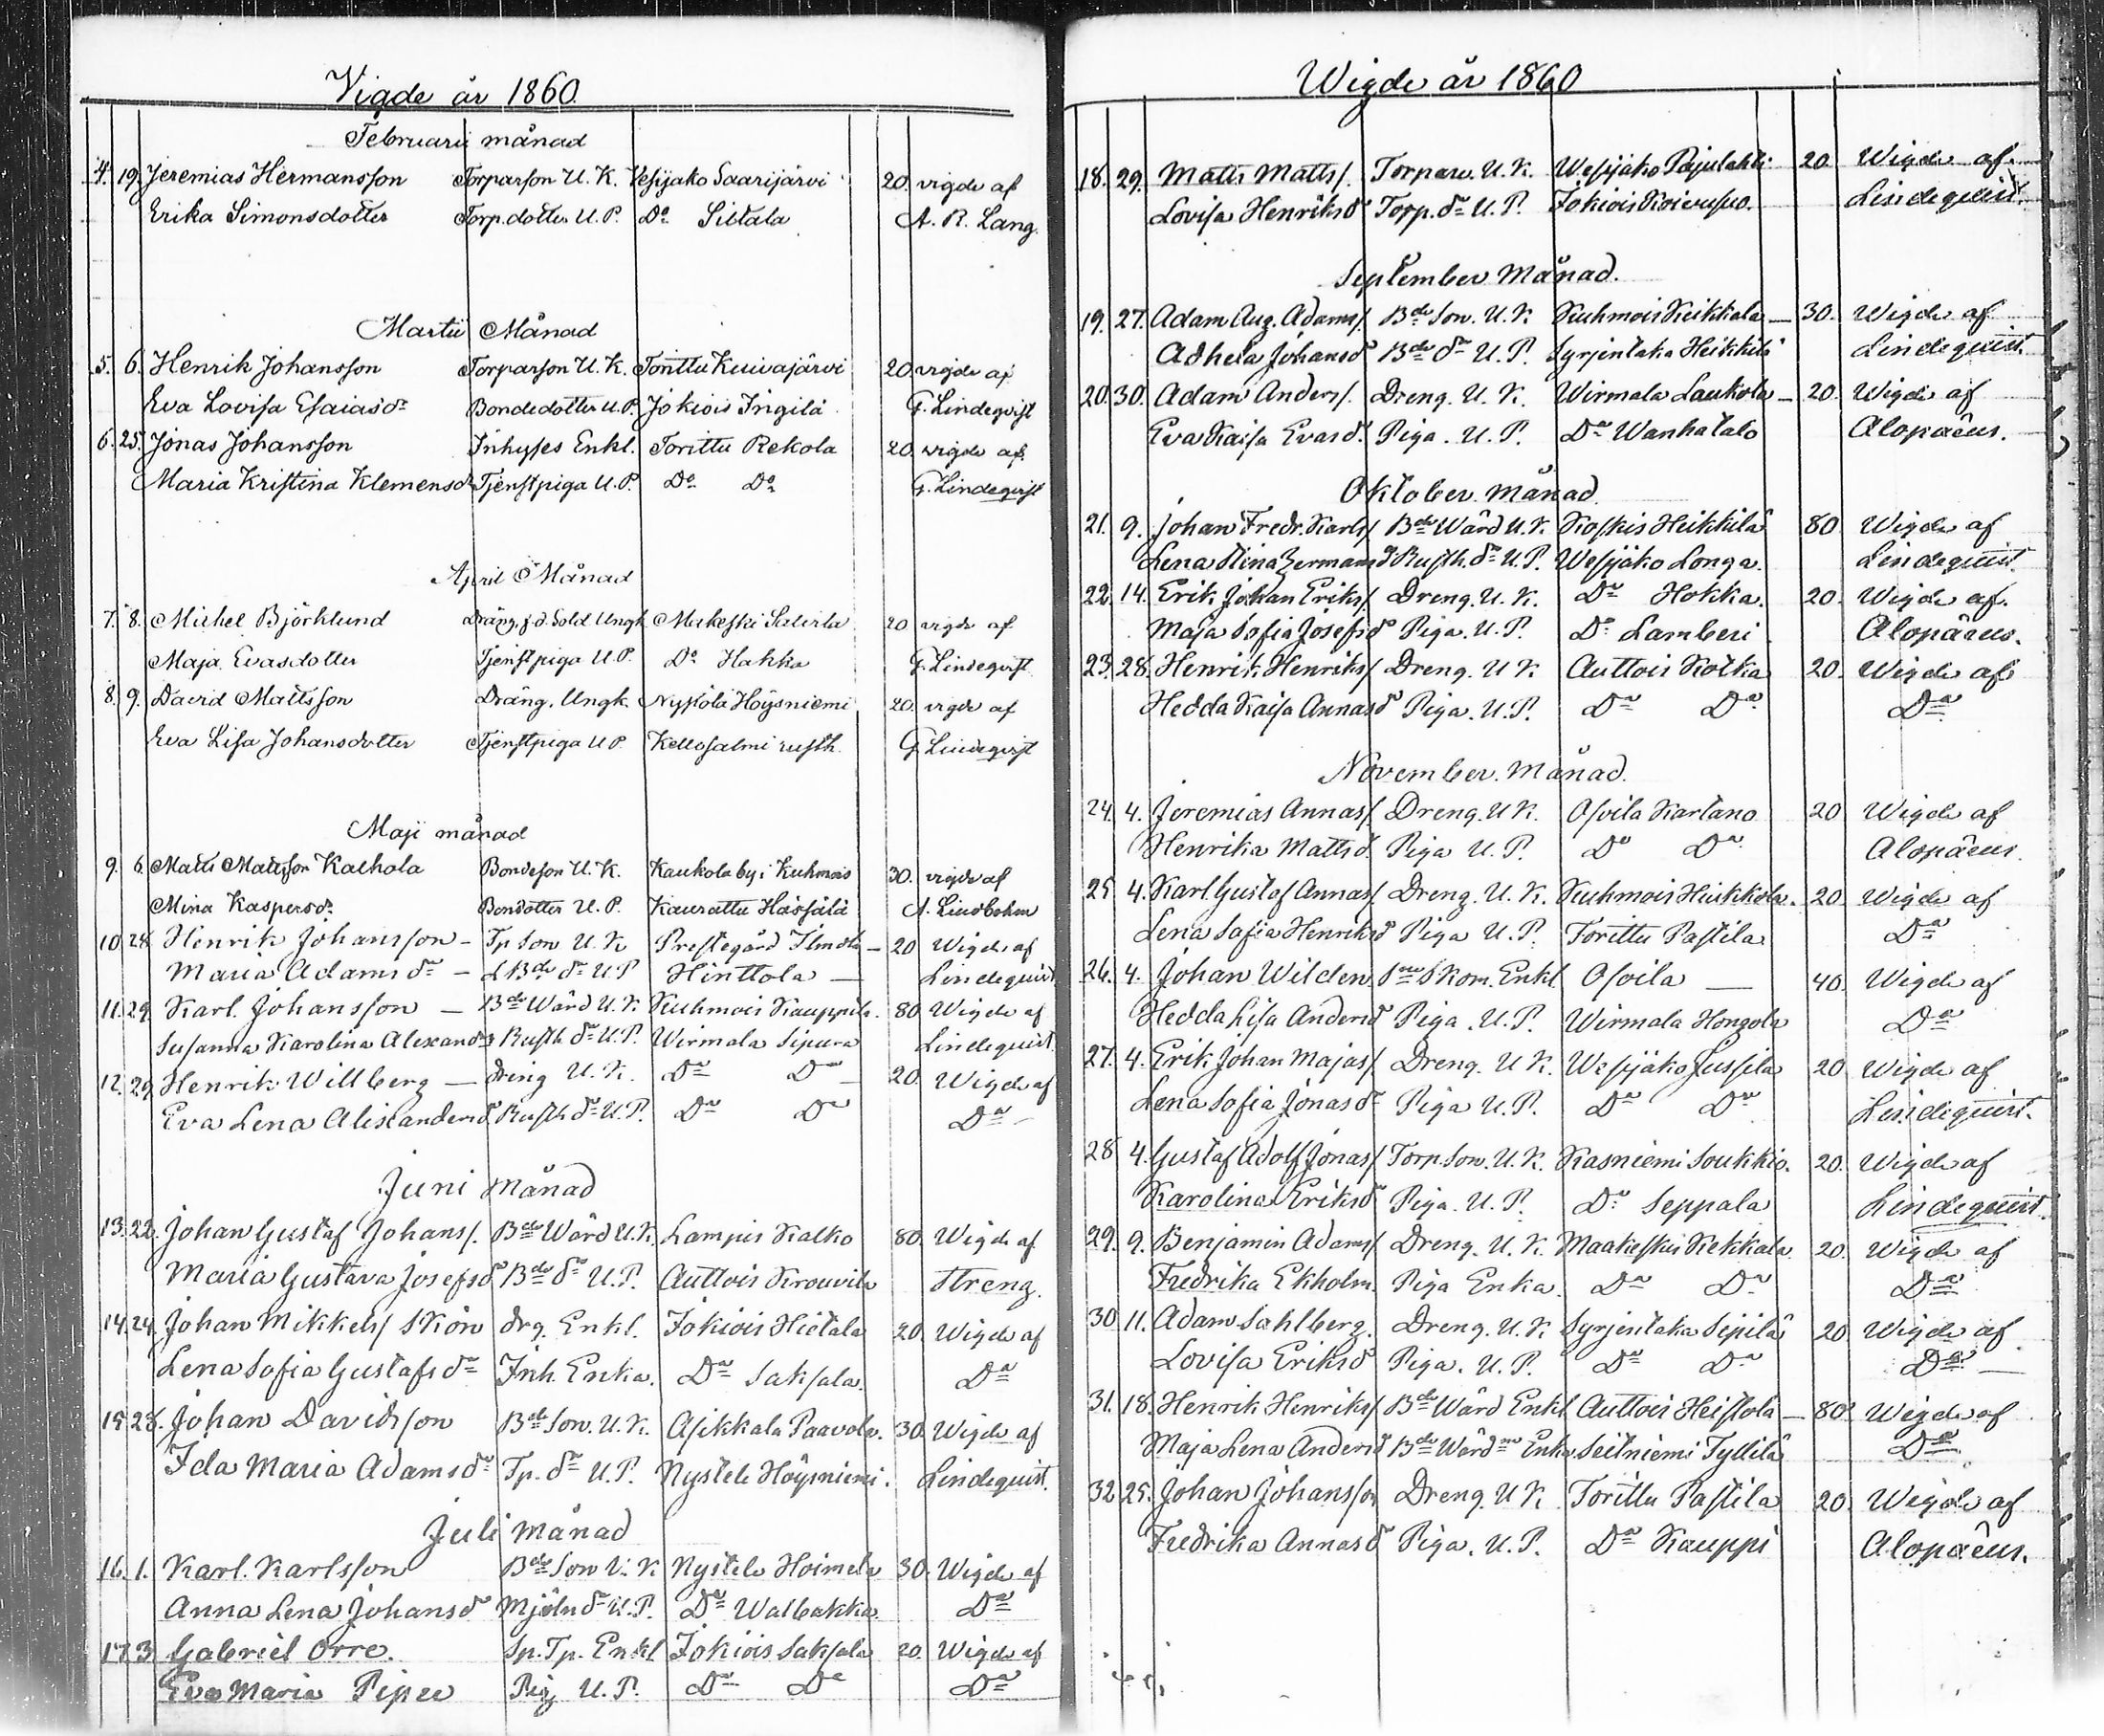 Vigde år 1860.
Februarii månad
4. 19. Jeremias Hermansson Torparson U. K. Vesijako Saarijärvi 20. vigde af
Erika Simonsdotter Torp.dotter U. P. Do Siltala A. R. Lang.
Martii Månad
5. 6. Henrik Johansson Torparson U. K. Torittu Kuivajärvi 20. vigde af
Eva Lovisa Esaiasdr Bondedotter U. P. Jokiois Ingilä G. Lindeqvist
6. 25. Jonas Johansson Inhyses Enkl. Torittu Rekola 20. vigde af
Maria Kristina Klemensd. Tjenstpiga U. P. Do Do G. Lindeqvist
April Månad
7. 8. Michel Björklund Dräng, f.d. Sold Ungk. Makeski 20 vigde af
Maja Evasdotter Tjenstpiga U. P. Do Hakka G. Lindeqvist
8. 9. David Mattsson Dräng. Ungk. Nystölä Höysniemi 20. vigde af
Eva Lisa Johansdotter Tjenstpiga U. P. Kellosalmi rusth. G. Lindeqvist
Maji månad
9. 6. Matts Mattsson Kalhola Bondeson U. K. Kaukola by i Kuhmois 30. vigde af
Mina Kaspersdr Bondotter U. P. Kaurattu Hassälä A. Lindbohm
10. 28. Henrik Johansson – Tp. Son U. K. Prestegård Ilmola – 20 Wigde af
Maria Adams dr – L. Bde dr U. P. Hinttola – Lindequist
11. 29. Karl Johansson – Bde Wärd U. K. Kuhmois Kauppila. 80 Wigde af
Susanna Karolina Alexandsd Rusth dr U. P. Wirmala Sipura Lindequist.
12. 29 Henrik Willberg – Dreng U. K. Do Do – 20. Wigde af
Eva Lena Alixandersd. Rusth dr U. P. Do Do Do –
Juni Månad
13. 22. Johan Gustaf Johans/. Bde Wärd U. K. Lampis Kalko 80. Wigde af
Maria Gustava Josefsd Bde dr U. P. Auttois Krouvila Streng.
14. 24. Johan Mikkels/ Skön drg. Enkl. Jokiois Hietala 20 Wigde af
Lena Sofia Gustafsdr Inh. Enka. Do Saksala. Do
15. 28. Johan Davidsson Bde Son. U. K. Asikkala Paavola. 30. Wigde af
Ida Maria Adamsdr Tp. dr U. P. Nystele Höysniemi. Lindequist.
Juli Månad
16. 1. Karl. Karlsson Bde Son U. K Nystele Hoimela 30. Wigde af
Anna Lena Johansd Mjöln dr U. P. Do Walbakka. Do
17. 3 Gabriel Orre. Sp. Tp. Enkl Jokiois Saksala 20. Wigde af
Eva Maria Piper Pig U. P. Do Do Do
Wigde år 1860
18. 29. Matts Matts/. Torpare. U. K. Wesijäko Pajulahti 20. Wigde af
Lovisa Henriksd Torp. dr U. P. Jokiois Koivusuo. Lindequist.
September Månad.
19. 27. Adam Aug. Adams/. Bde Son. U. K Kuhmois Keikkala – 30. Wigde af
Adhela Johansd Bde dr U. P. Syrjentaka Heikkilä Lindequist.
20. 30. Adam Anders/. Dreng. U. K. Wirmala Laukola – 20. Wigde af
Eva Kaisa Evasd. Piga. U. P. Do Wanhatalo Alopæus.
Oktober Månad
21. 9. Johan Fredr. Karls/ Bde Wärd U. K Koskis Heikkilä 80 Wigde af
Lena Stina Hermansd Rusth. dr U. P. Wesijäko Longa. Lindequist.
22. 14. Erik Johan Eriks/ Dreng. U. K. Do Hokka. 20. Wigde af.
Maja Sofia Josefsd Piga. U. P. Do Lamberi Alopæus.
23. 28. Henrik Henriks/ Dreng. U K Auttois Kotka 20. Wigde af
Hedda Kaisa Annasd Piga. U. P. Do Do Do
November Månad.
24. 4. Jeremias Annas/. Dreng. U K. Osoila Kartano 20 Wigde af
Henrika Mattsd. Piga U. P. Do Do Alopæus.
25 4. Karl Gustaf Annas/ Dreng. U. K. Kuhmois Heikkola. 20. Wigde af
Lena Sofia Henriksd Piga U. P. Torittu Pastila Do
26. 4. Johan Wilden Skom. Enkl Osoila – 40. Wigde af
Hedda Lisa Andersd Piga. U. P. Wirmala Hongola Do
27. 4. Erik Johan Majas/ Dreng. U. K. Wesijäko Jussila 20 Wigde af
Lena Sofia Jonasdr Piga U. P. Do Do Lindequist.
28 4. Gustaf Adolf Jonas/ Torp. Son. U. K. Kasniemi Soukkio. 20. Wigde af
Karolina Eriksd Piga. U. P. Do Seppala Lindequist.
29. 9. Benjamin Adams/ Dreng. U. K. Maakeskis Kekkala. 20. Wigde af
Fredrika Ekholm. Piga Enka. Do Do Do
30 11. Adam Sahlberg. Dreng. U. K Syrjentaka Sipilä 20 Wigde af
Lovisa Eriksd Piga. U. P. Do Do Do –
31. 18. Henrik Henriks/ Bde Wärd Enkl Auttois Heistola – 80 Wigde af
Maja Lena Andersd Bde Wärd Enka Seitniemi Tyllilä Do
32 25. Johan Johansson Dreng. U K Torittu Pastila 20. Wigde af
Fredrika Annasd Piga. U. P. Do Kauppi Alopæus.